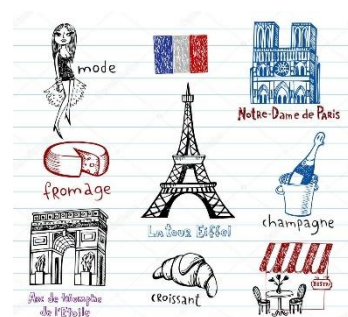 mode
Notre-Dame de Paris
fromage
La Tour Eiffel
champagne
Arc de Triomphe
de l'Etoile
croissant
BISTRO